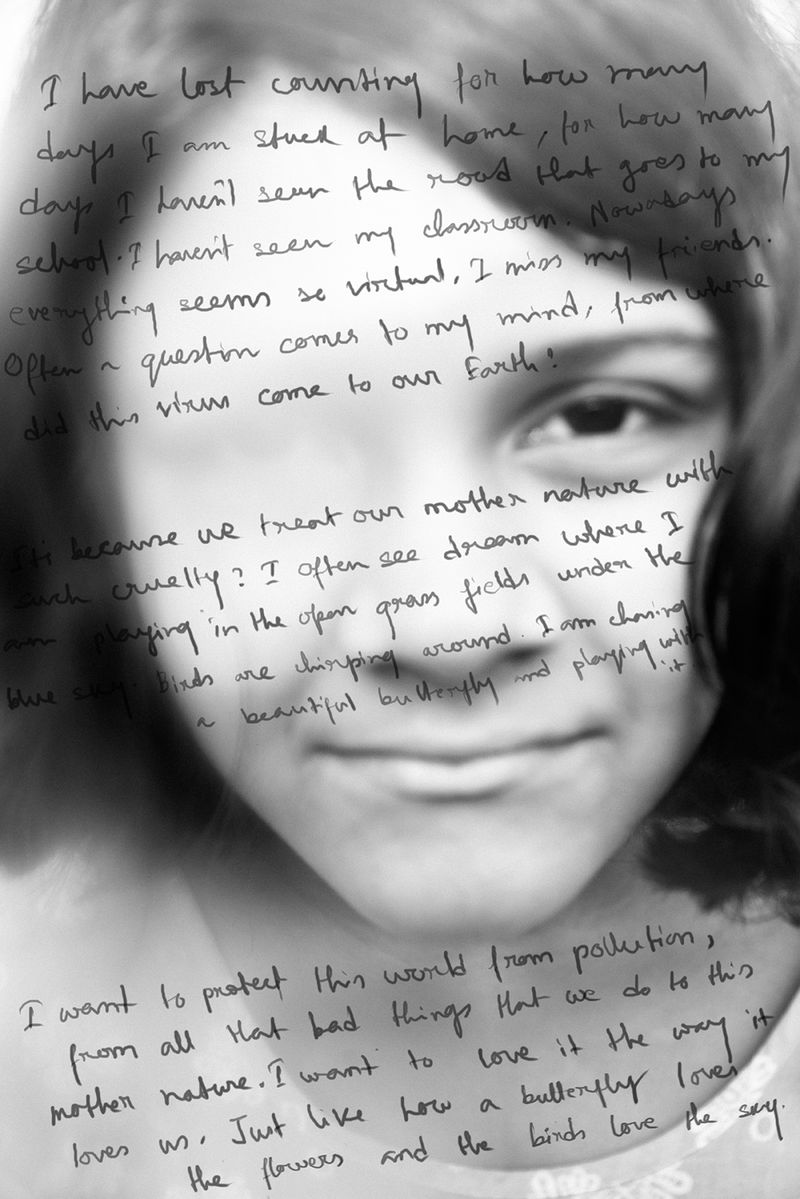 I have lost counting for how many
days I am stuck at home, for how many
days I haven't seen the road that goes to my
school. I haven't seen my classroom. Nowadays
everything seems so virtual. I miss my friends.
Often a question comes to my mind, from where
did this virus come to our Earth?
Iti because we treat our mother nature with
such cruelty? I often see dream where I
am playing in the open grass fields under the
blue sky. Birds are chirping around. I am chasing
a beautiful butterfly and playing with
it.
I want to protect this world from pollution,
from all that bad things that we do to this
mother nature. I want to love it the way it
loves us. Just like how a butterfly loves
the flowers and the birds love the sky.